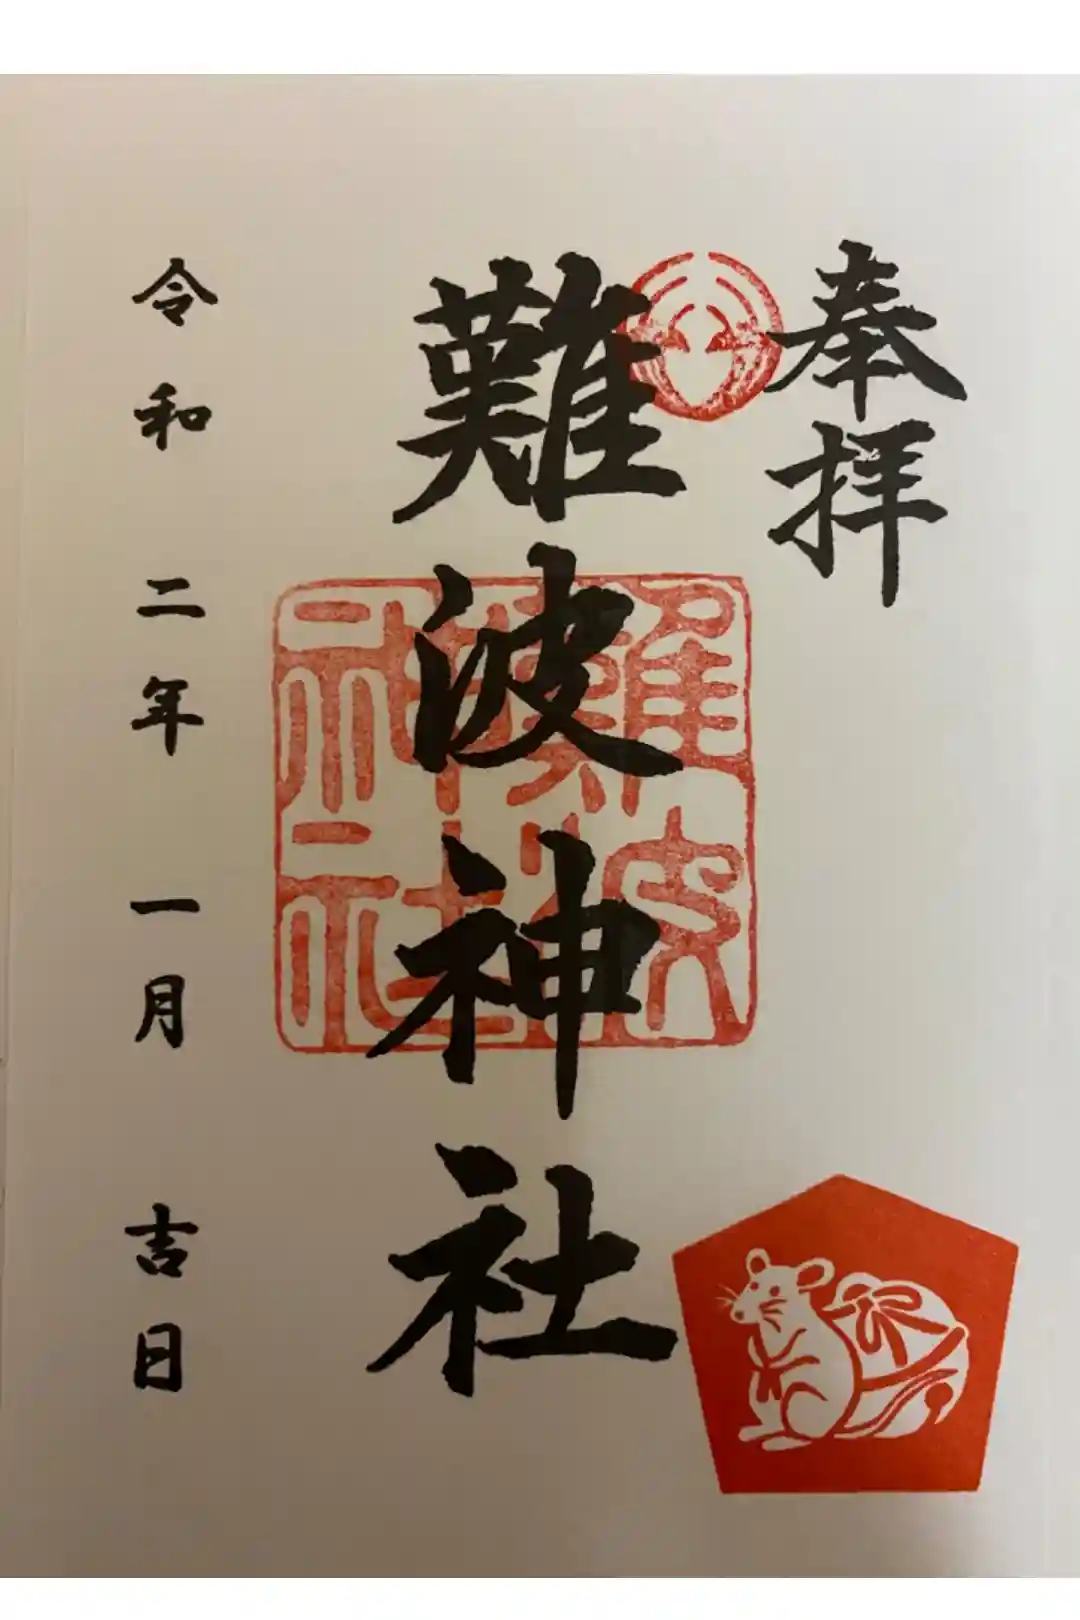 奉拝
難波神社
難波
神社
令和二年一月吉日